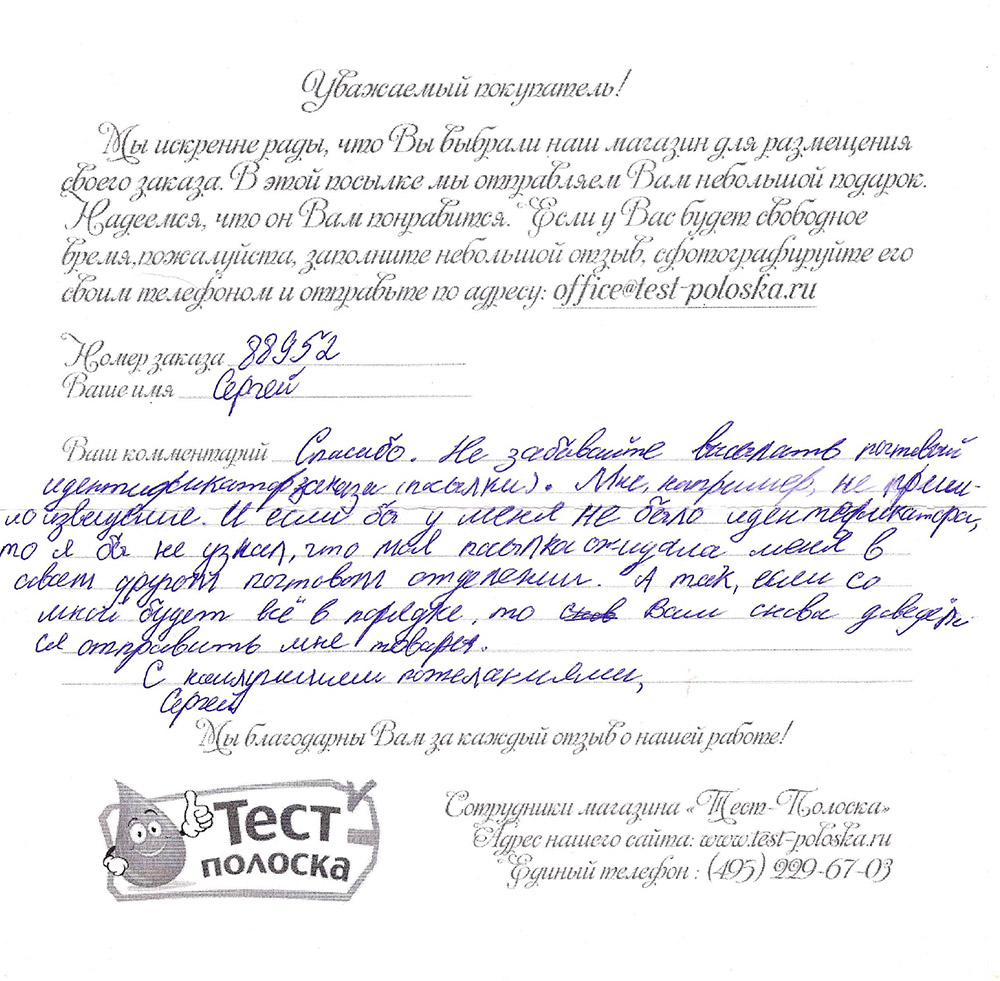 Уважаемый покупатель!
Мы искренне рады, что Вы выбрали наш магазин для размещения
своего заказа. В этой посылке мы отправляем Вам небольшой подарок.
Надеемся, что он Вам понравится. Если у Вас будет свободное
время,пожалуйста, заполните небольшой отзыв, сфотографируйте его
своим телефоном и отправьте по адресу: office@test-poloska.ru
Номер заказа 88952
Ваше имя Сергей
Ваш комментарий Спасибо. Не забывайте высылать почтовый
идентификатор заказа (посылки). Мне, например, не приш-
ло извещение. И если бы у меня не было идентификатора,
то я бы не узнал, что моя посылка ожидала меня в
совсем другом почтовом отделении. А так, если со
мной будет всё в порядке, то Вам снова доведёт
ся отправить мне товары.
С наилучшими пожеланиями,
Сергей
Мы благодарны Вам за каждый отзыв о нашей работе!
Тест
полоска
Сотрудники магазина «Тест-Полоска»
Адрес нашего сайта: www.test-poloska.ru
Единый телефон : (495) 229-67-03